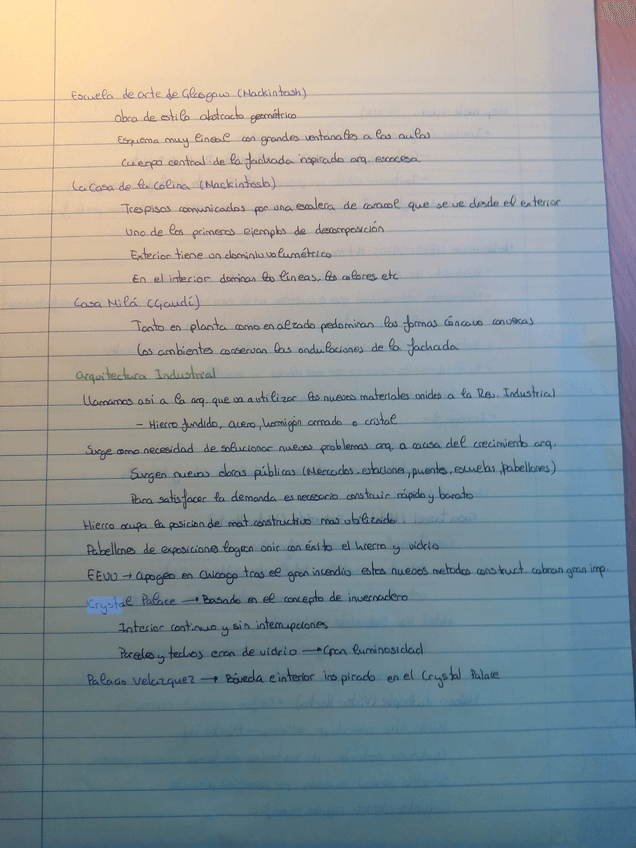 Escuela de arte de Glasgow (Mackintosh)
Obra de estilo abstracto geométrico
Esquema muy lineal con grandes ventanales a las aulas
Cuerpo central de la fachada inspirado arq. escocesa
La Casa de la Colina (Mackintosh)
Tres pisos comunicados por una escalera de caracol que se ve desde el exterior
Uno de los primeros ejemplos de descomposición
Exterior tiene un dominio volumétrico
En el interior dominan las líneas, los colores etc
Casa Milá (Gaudí)
Tanto en planta como en alzado predominan las formas cóncavo convexas
Los ambientes conservan las ondulaciones de la fachada
Arquitectura Industrial
Llamamos así a la arq. que va a utilizar los nuevos materiales unidos a la Rev. Industrial
- Hierro fundido, acero, hormigón armado o cristal
Surge como necesidad de solucionar nuevos problemas arq. a causa del crecimiento arq.
Surgen nuevas obras públicas (Mercados, estaciones, puentes, escuelas, pabellones)
Para satisfacer la demanda es necesario construir rápido y barato
Hierro ocupa la posición de mat. constructivo mas utilizado
Pabellones de exposiciones logran unir con éxito el hierro y vidrio
EEUU → apogeo en Chicago tras el gran incendio estos nuevos metodos construct. cobran gran imp.
Crystal Palace → Basado en el concepto de invernadero
Interior continuo y sin interrupciones
Paredes y techos eran de vidrio → Gran luminosidad
Palacio Velázquez → Bóveda e interior inspirado en el Crystal Palace